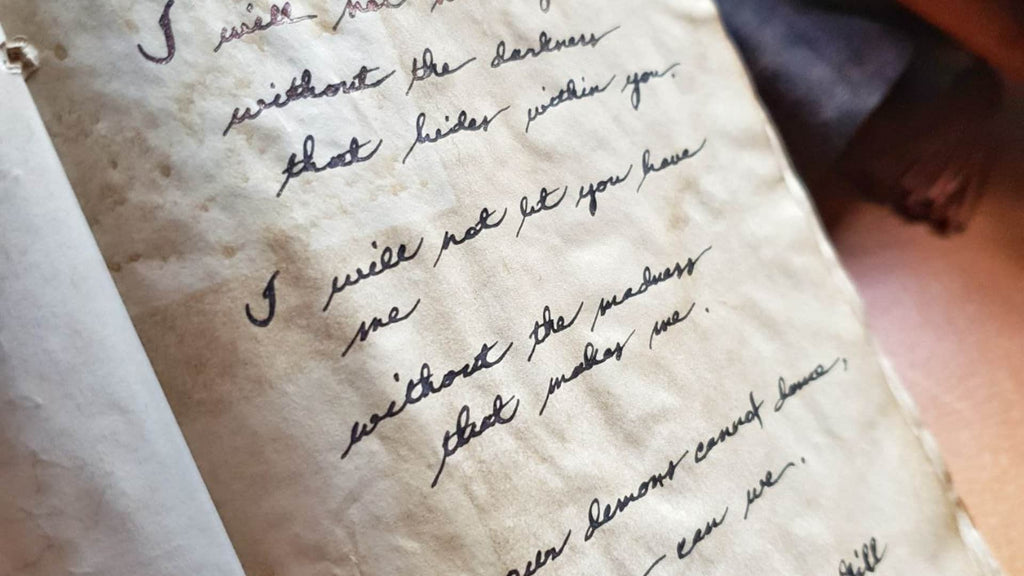 I will not
without the darkness
that hides within you.
I will not let you have
me
without the madness
that makes me.
our demons cannot dance,
can we.